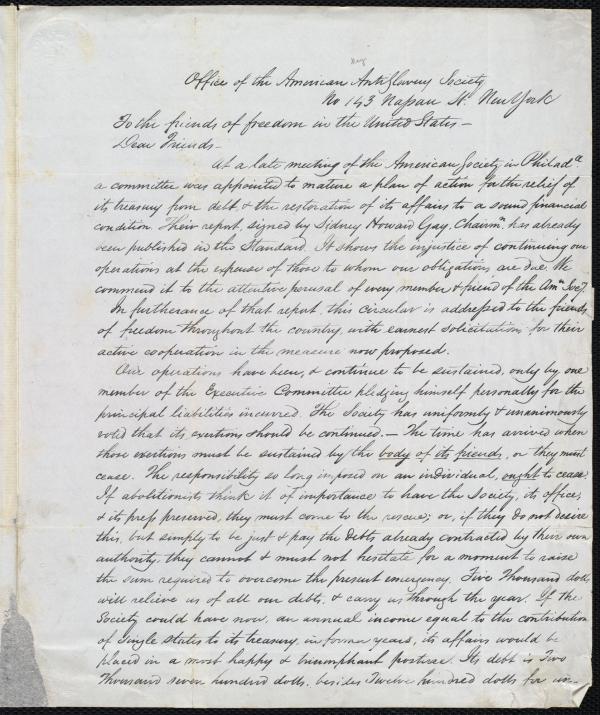 Office of the American AntiSlavery Society
No 143 Nassau St. New York
To the friends of freedom in the United States—
Dear Friends—
At a late meeting of the American Society in Philada
a committee was appointed to mature a plan of action for the relief of
its treasury from debt, & the restoration of its affairs to a sound financial
condition. Their report, signed by Sidney Howard Gay, Chairmn, has already
been published in the Standard. It shows the injustice of continuing our
operations at the expense of those to whom our obligations are due. We
commend it to the attentive perusal of every member & friend of the Amn Socy.
In furtherance of that report, this circular is addressed to the friends
of freedom throughout the country, with earnest solicitations for their
active cooperation in the measure now proposed.
Our operations have been, & continue to be sustained, only by one
member of the Executive Committee pledging himself personally for the
principal liabilities incurred. The Society has uniformly & unanimously
voted that its exertions should be continued.— The time has arrived when
those exertions must be sustained by the body of its friends, or they must
cease. The responsibility so long imposed on an individual, ought to cease.
If abolitionists think it of importance to have the Society, its offices,
& its press preserved, they must come to the rescue; or, if they do not desire
this, but simply to be just & pay the debts already contracted by their own
authority, they cannot & must not hesitate for a moment to raise
the sum required to overcome the present emergency. Five Thousand dolls
will relieve us of all our debts, & carry us through the year. If the
Society could have now, an annual income equal to the contribution
of single states to its treasury, in former years, its affairs would be
placed in a most happy & triumphant posture. Its debt is Two
Thousand seven hundred dolls. besides Twelve hundred dolls for un-